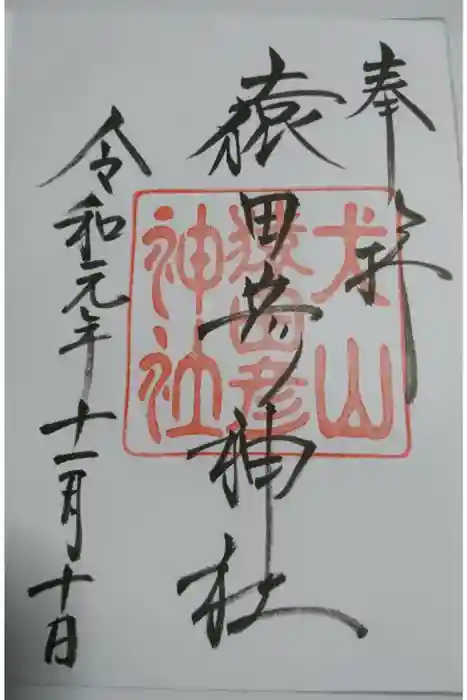 奉拝
猿田彦神社
犬山
猿田彦
神社
令和元年十一月十日